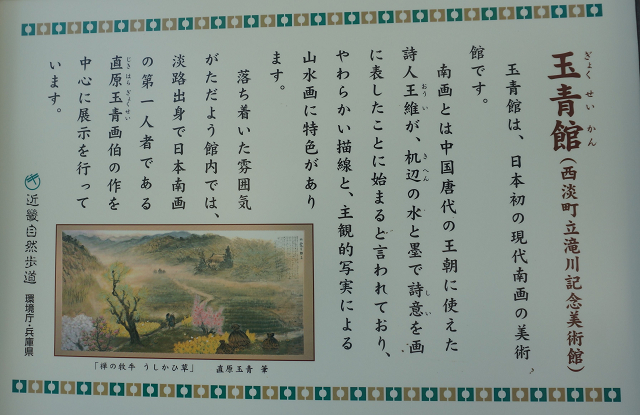 玉青館(西淡町立滝川記念美術館)
ぎょく せい かん
玉青館は、日本初の現代南画の美術
館です。
南画とは中国唐代の王朝に使えた
詩人王維が、机辺の水と墨で詩意を画
おう い
きへん
しい
に表したことに始まると言われており、
やわらかい描線と、主観的写実による
山水画に特色があり
ます。
落ち着いた雰囲気
がただよう館内では、
淡路出身で日本南画
の第一人者である
直原玉青画伯の作を
じきはらぎょくせい
中心に展示を行って
います。
近畿自然歩道
環境庁・兵庫県
「禅の牧牛 うしかひ草」 直原玉青 筆